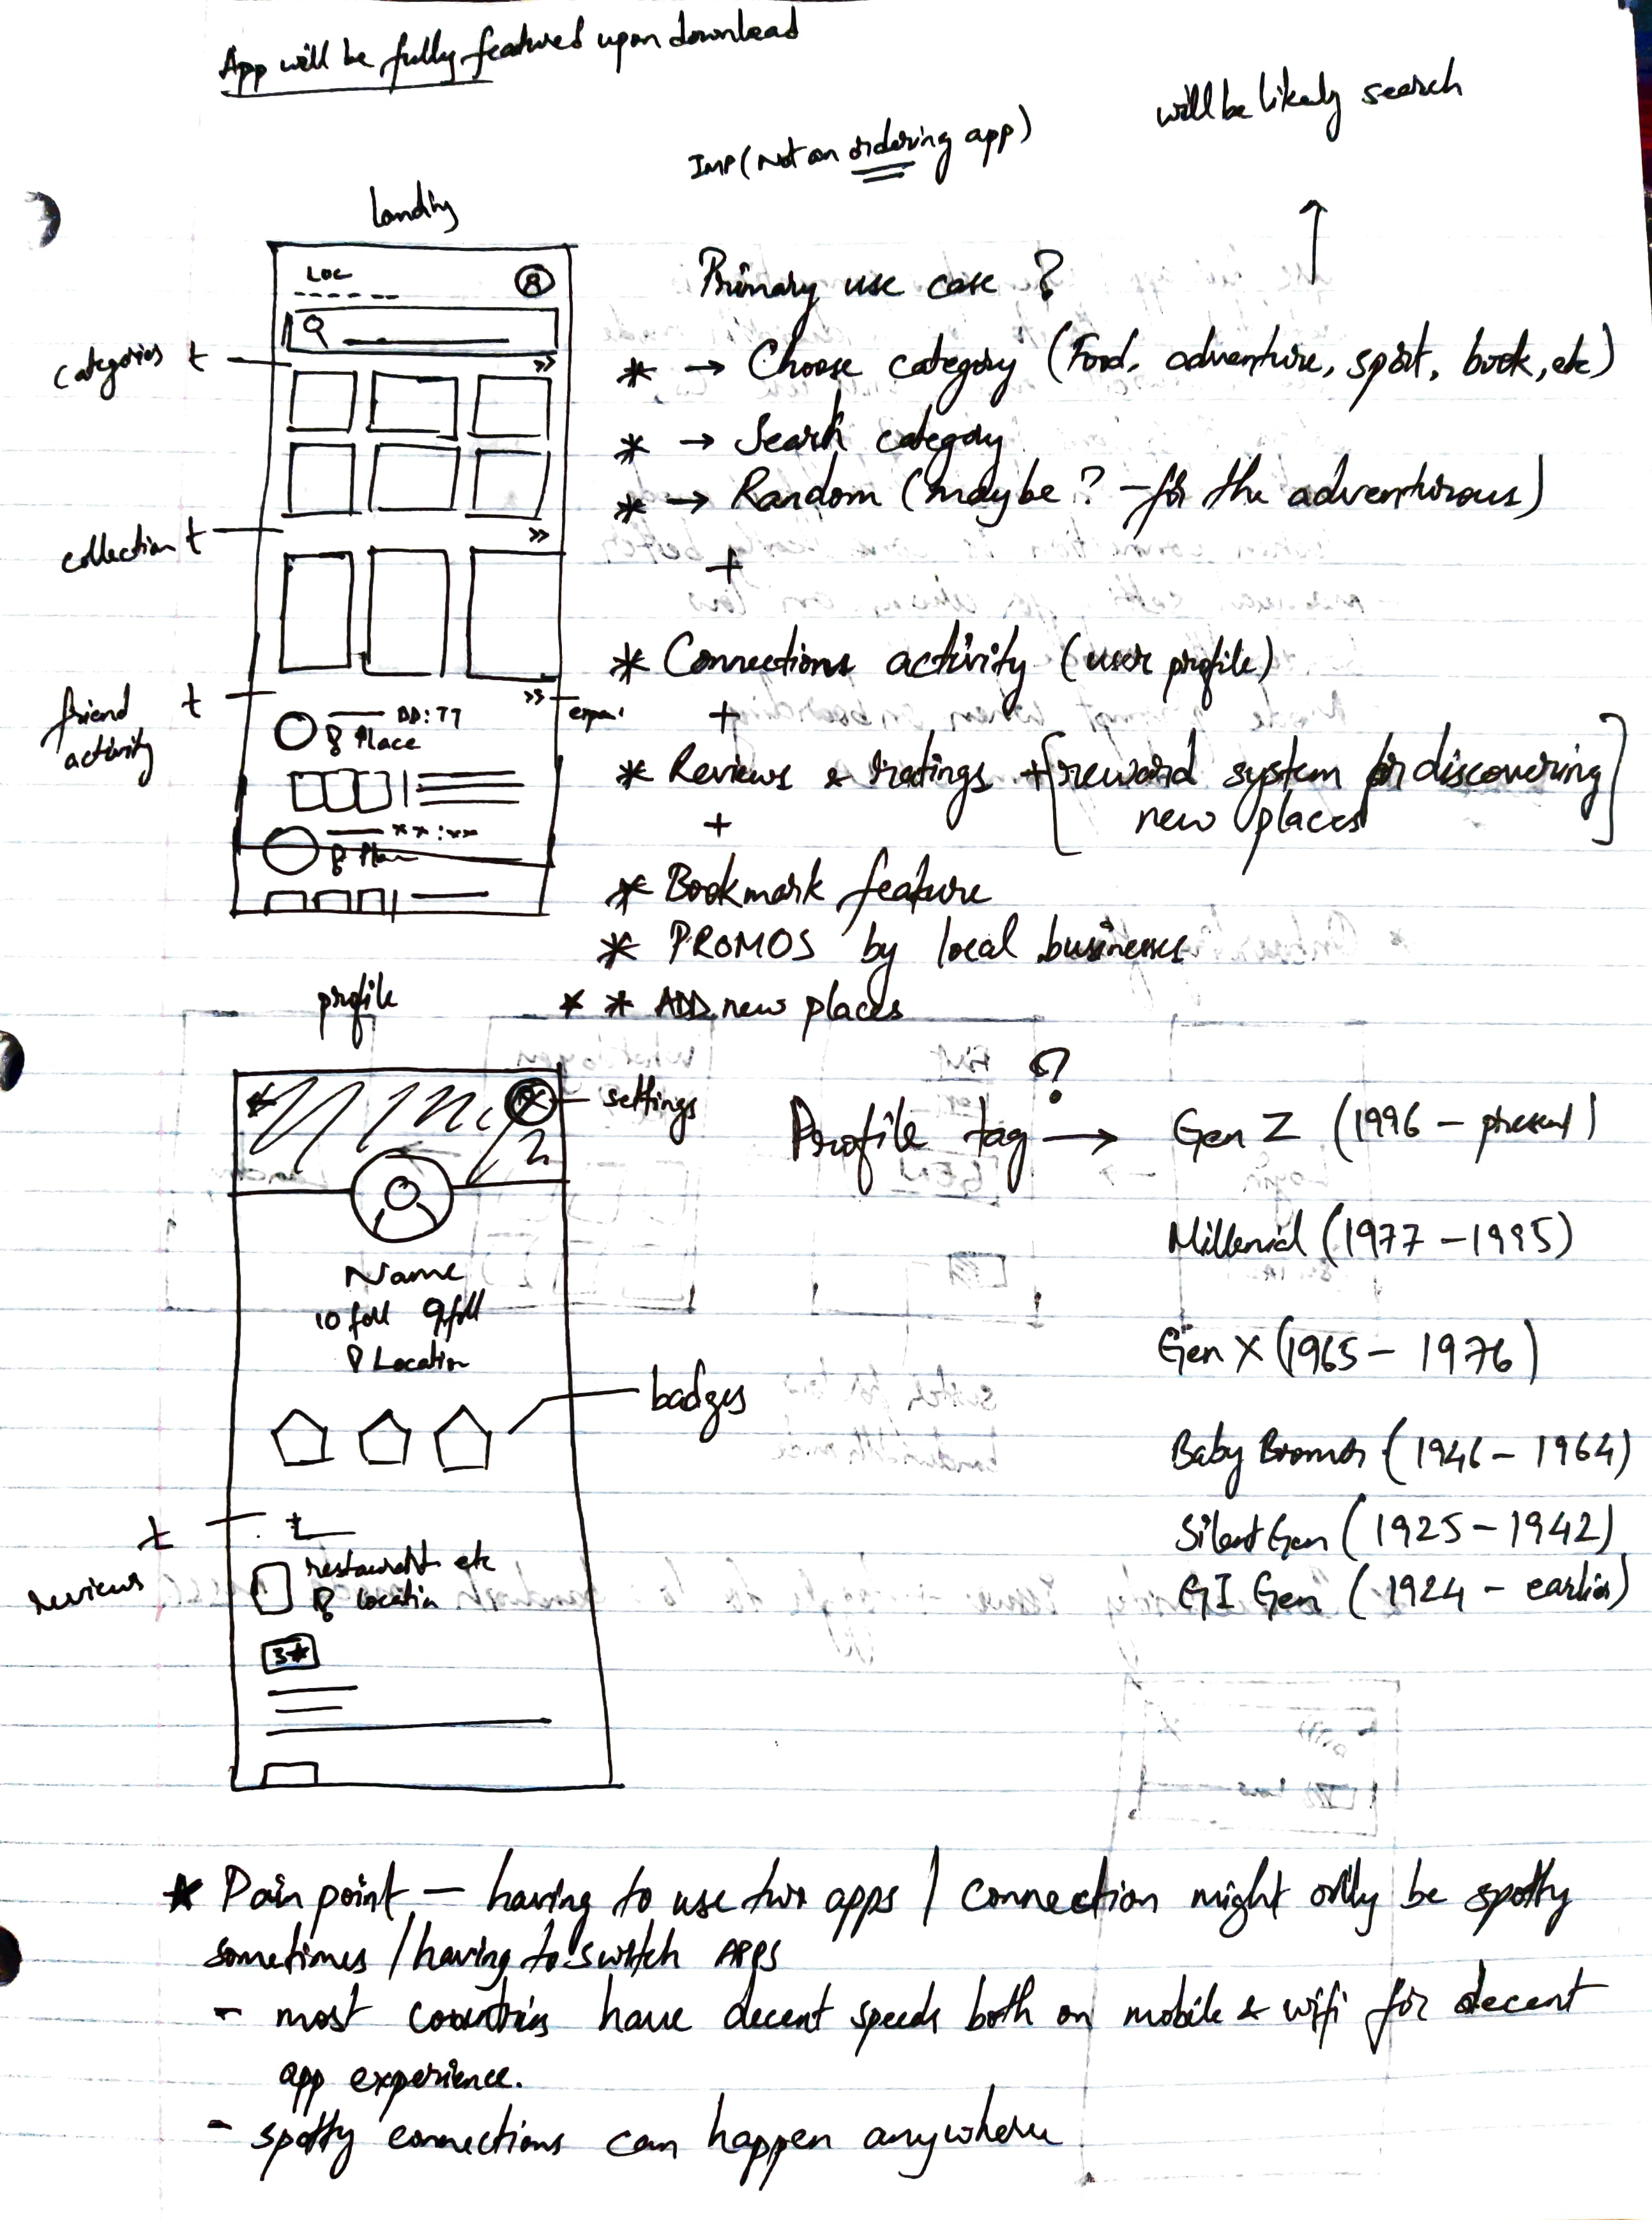 App will be fully featured upon download
will be likely search
Imp (Not an ordering app)
landing
Loc
categories t
collection t
friend activity t
DD:TT
Place
**:**
Primary use case ?
* → Choose category (Food, adventure, sport, book, etc)
* → Search category
* → Random (maybe? - for the adventurous)
+
* Connections activity (user profile)
+
* Reviews & ratings + [reward system for discovering
new places]
+
* Bookmark feature
* PROMOS by local businesses
* * ADD new places
profile
settings
Name
10 foll 9 foll
Location
badges
t
reviews
t
restaurant etc
Location
3*
?
Profile tag → Gen Z (1996 - present)
Millenial (1977 - 1995)
Gen X (1965 - 1976)
Baby Bromer (1946 - 1964)
Silent Gen (1925 - 1942)
GI Gen (1924 - earlier)
* Pain point - having to use two apps / connection might only be spotty
sometimes / having to switch APPS
- most countries have decent speeds both on mobile & wifi for decent
app experience.
- spotty connections can happen anywhere